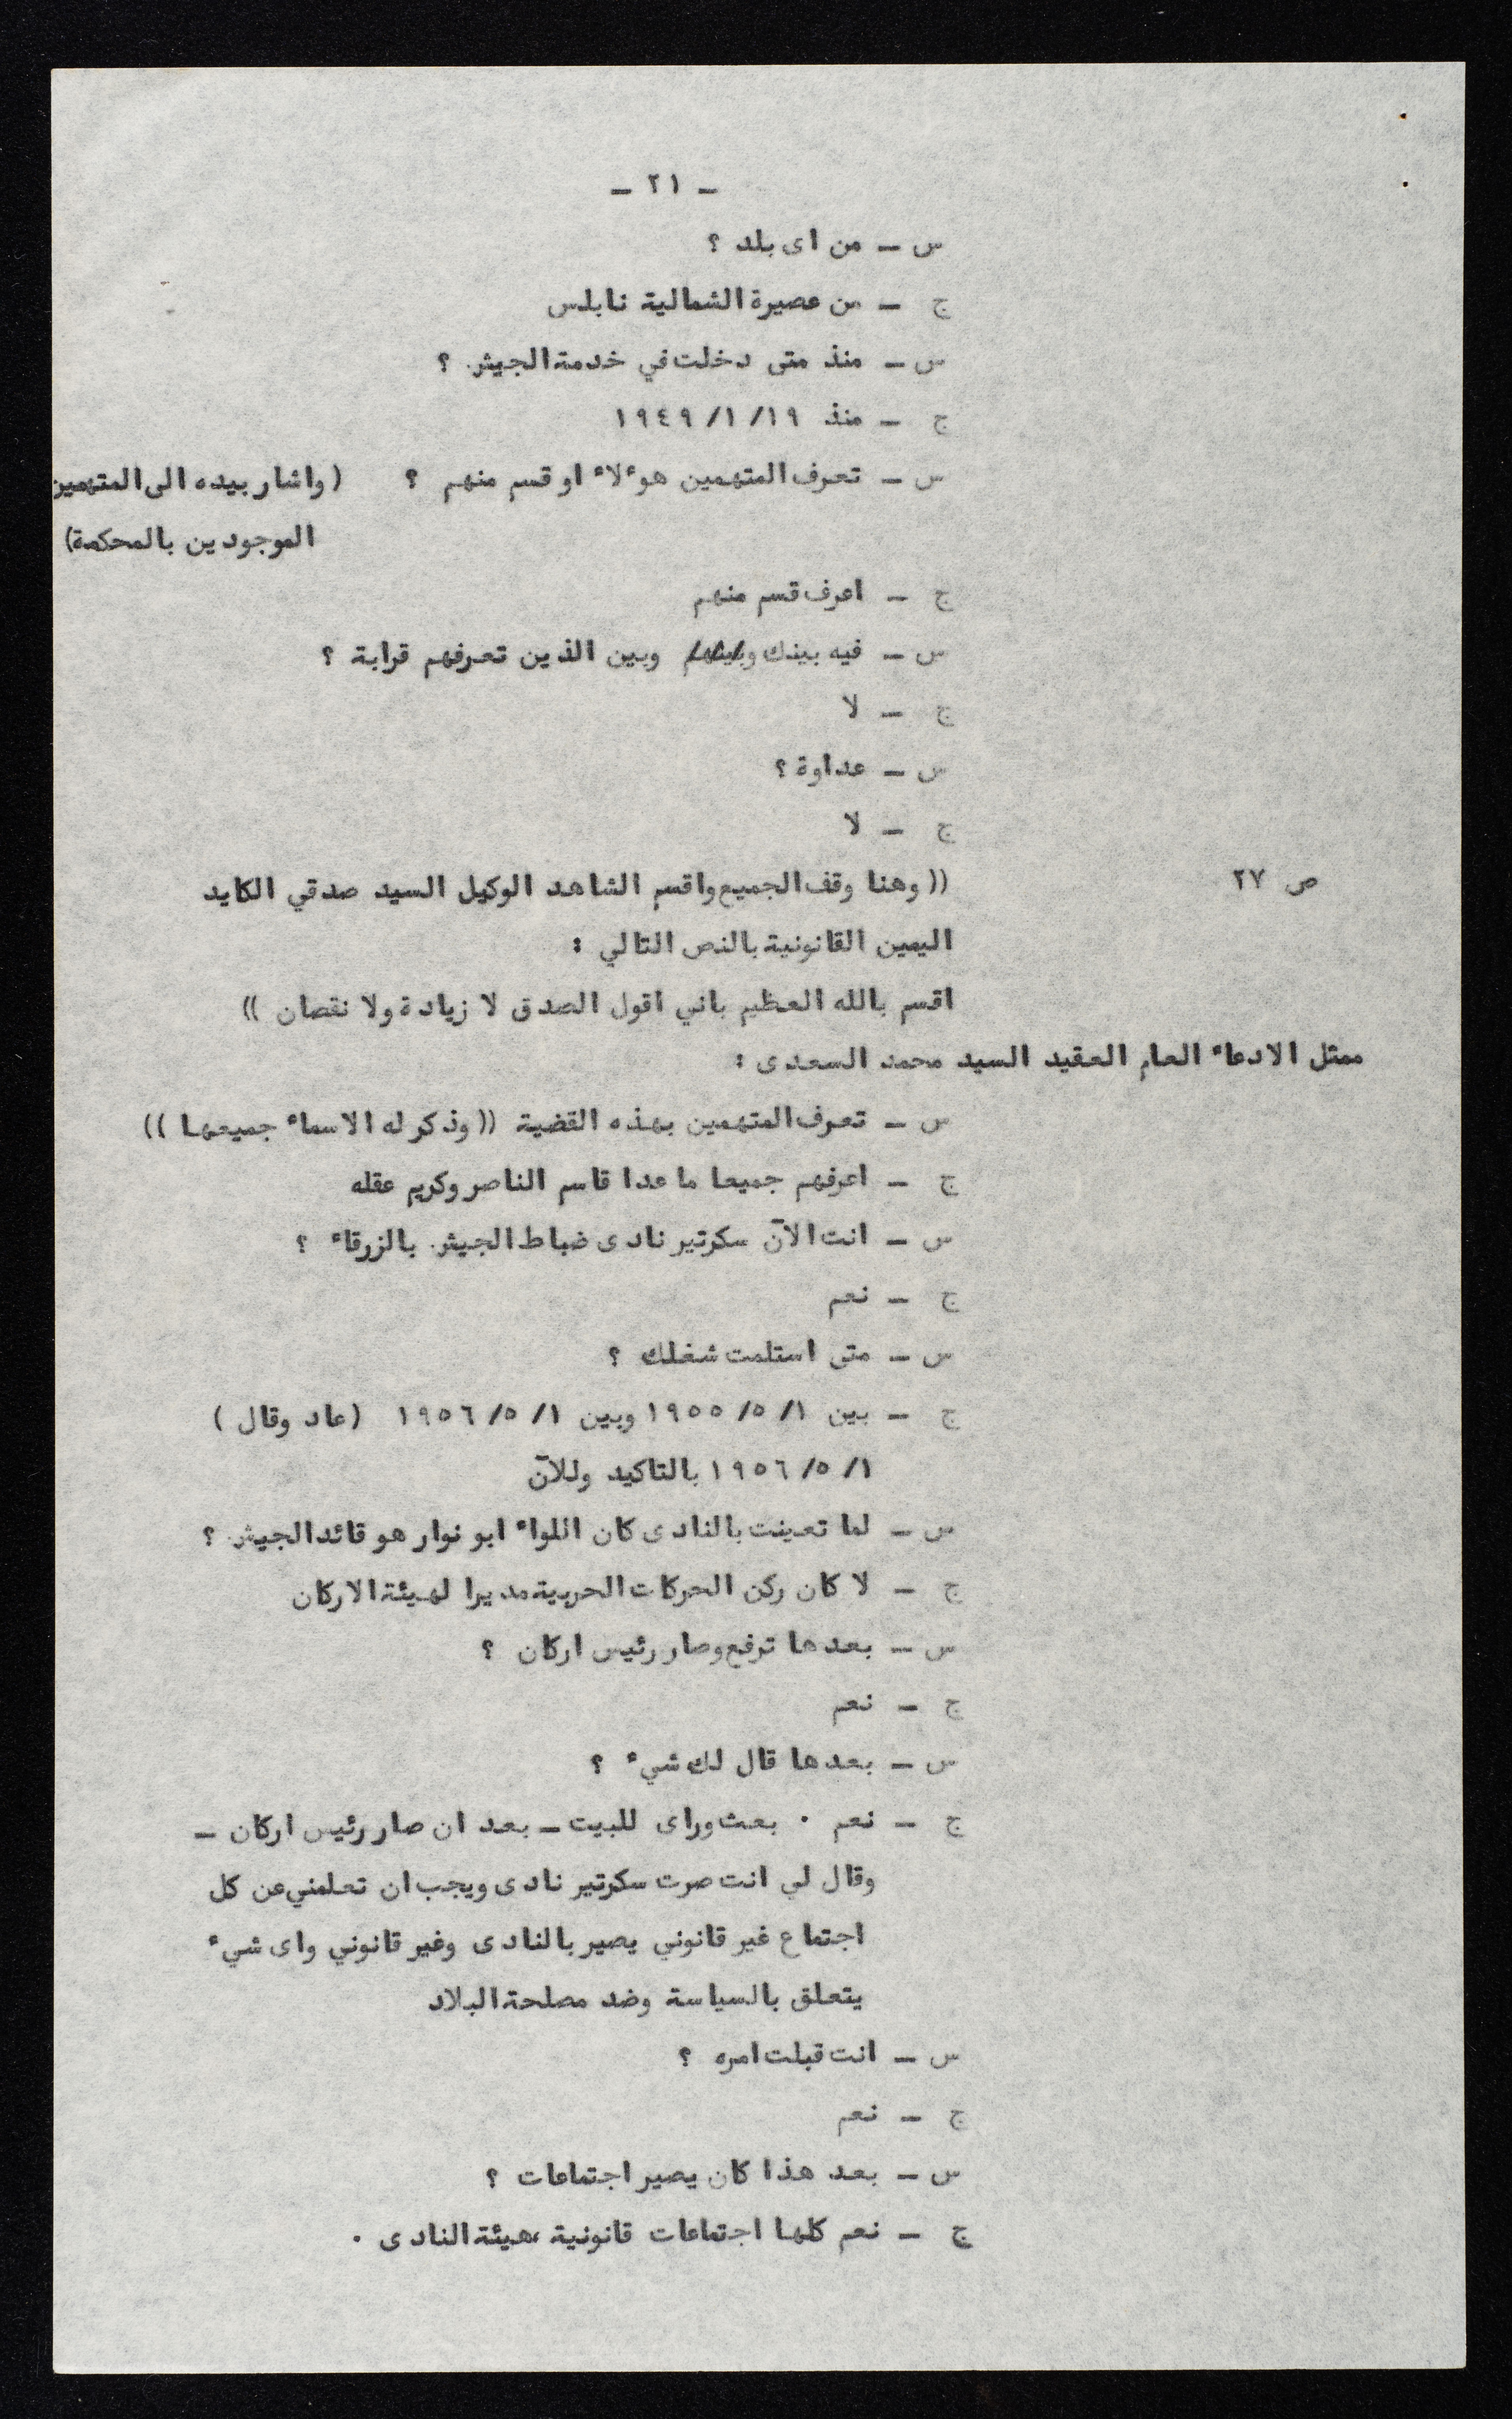 - ٢١ -
س - من اى بلد ؟
ج - من عصيرة الشمالية نابلس
س - منذ متى دخلت في خدمة الجيش ؟
ج - منذ ١٩٤٩/١/١٩
س - تعرف المتهمين هوءلاء او قسم منهم ؟ (واشار بيده الى المتهمين
الموجودين بالمحكمة)
ج - اعرف قسم منهم
س - فيه بينك وبين الذين تعرفهم قرابة ؟
ج - لا
س - عداوة ؟
ج - لا
ص ٢٧ ((وهنا وقف الجميع واقسم الشاهد الوكيل السيد صدقي الكايد
اليمين القانونية بالنص التالي :
اقسم بالله العظيم باني اقول الصدق لا زيادة ولا نقصان ))
ممثل الادعاء العام العقيد السيد محمد السعدى :
س - تعرف المتهمين بهذه القضية ((وذكر له الاسماء جميعها ))
ج - اعرفهم جميعا ما عدا قاسم الناصر وكريم عقله
س - انت الآن سكرتير نادى ضباط الجيش بالزرقاء ؟
ج - نعم
س - متى استلمت شغلك ؟
ج - بين ١٩٥٥/٥/١ وبين ١٩٥٦/٥/١ (عاد وقال )
١٩٥٦/٥/١ بالتاكيد وللآن
س - لما تعينت بالنادى كان اللواء ابو نوار هو قائد الجيش ؟
ج - لا كان ركن الحركات الحربية مديرا لهيئة الاركان
س - بعدها ترفع وصار رئيس اركان ؟
ج - نعم
س - بعدها قال لك شيء ؟
ج - نعم . بعث وراى للبيت - بعد ان صار رئيس اركان -
وقال لي انت صرت سكرتير نادى ويجب ان تعلمني عن كل
اجتماع غير قانوني يصير بالنادى وغير قانوني واى شيء
يتعلق بالسياسة وضد مصلحة البلاد
س - انت قبلت امره ؟
ج - نعم
س - بعد هذا كان يصير اجتماعات ؟
ج - نعم كلها اجتماعات قانونية ،هيئة النادى .